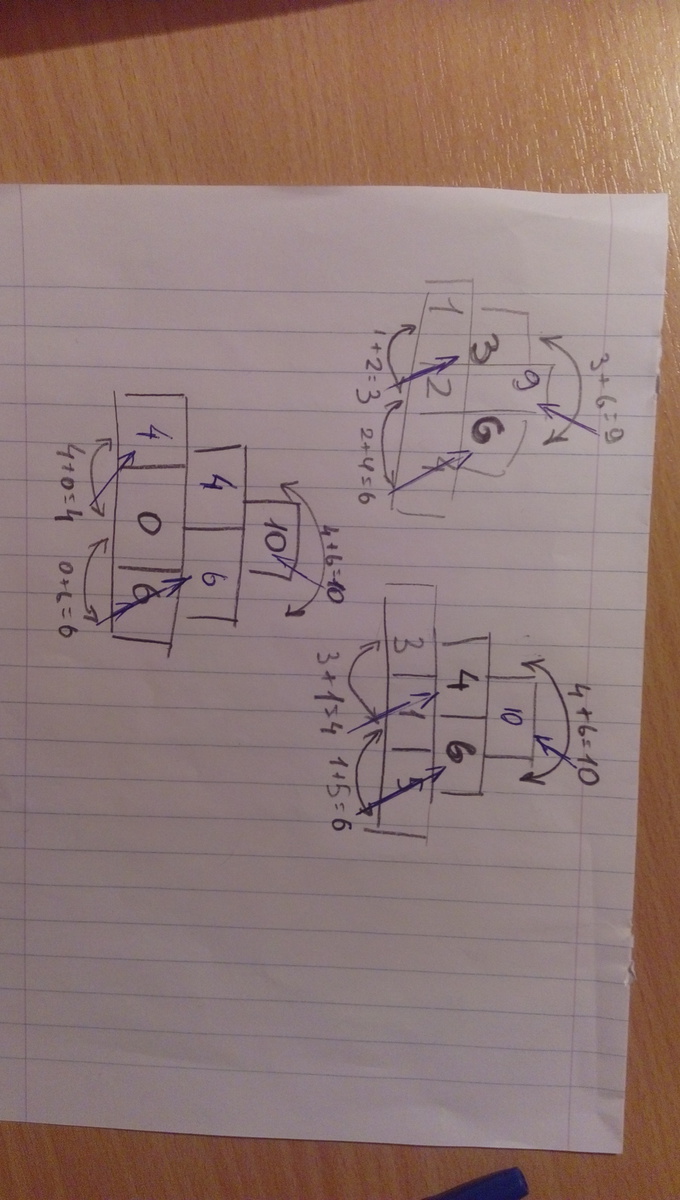 3+6=9
9
3 6
1 2 4
1+2=3 2+4=6
4+6=10
10
4 6
3 1 5
3+1=4 1+5=6
4+6=10
10
4 6
4 0 6
4+0=4 0+6=6